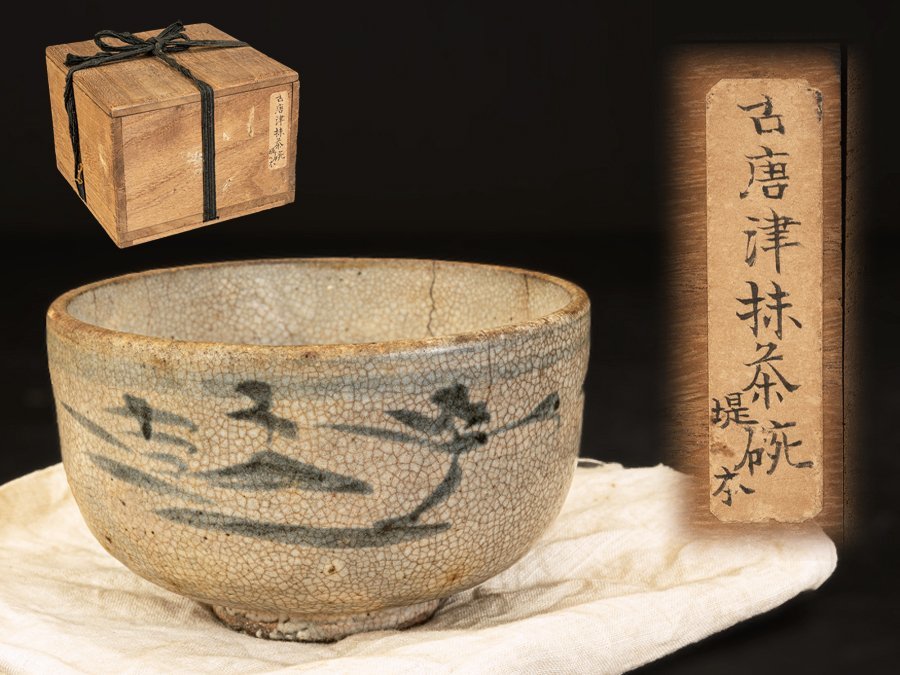 古唐津抹茶碗
古唐津抹茶碗
堤